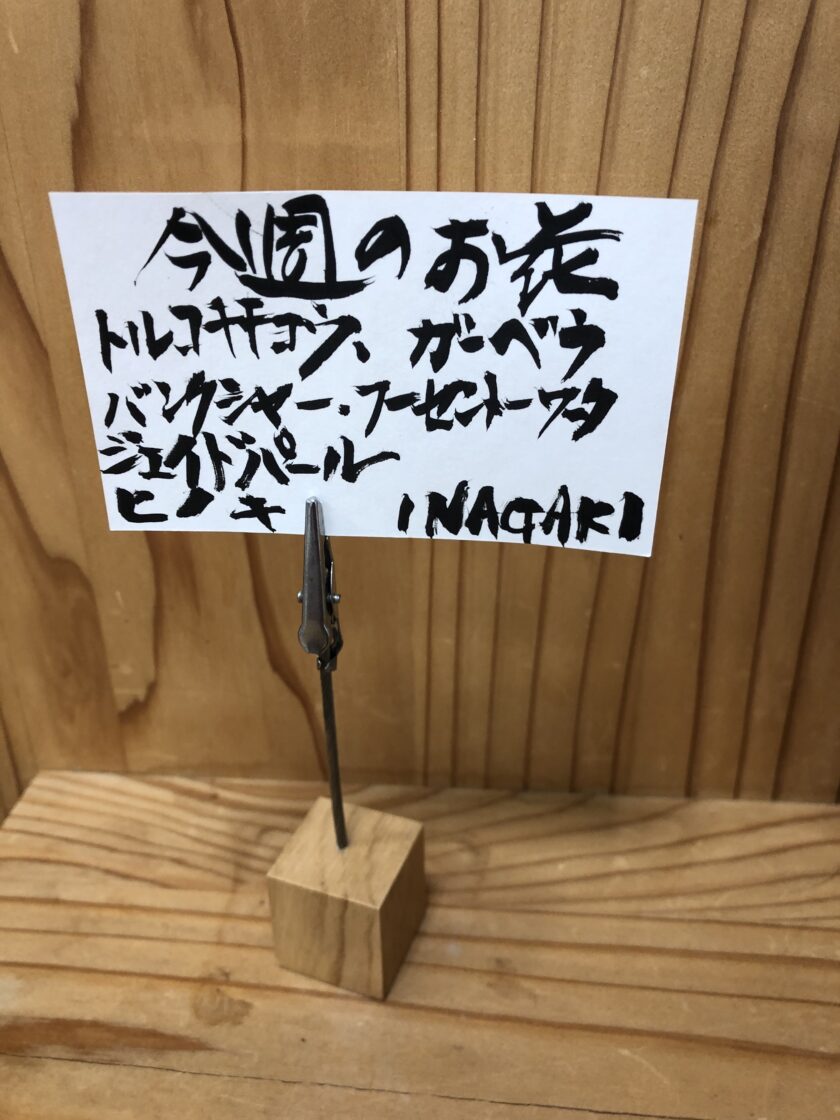 今週のお花
トルコキキョウ、ガーベラ
バンクシャー、フーセントーワタ
ジェイドパール
ヒノキ INAGAKI